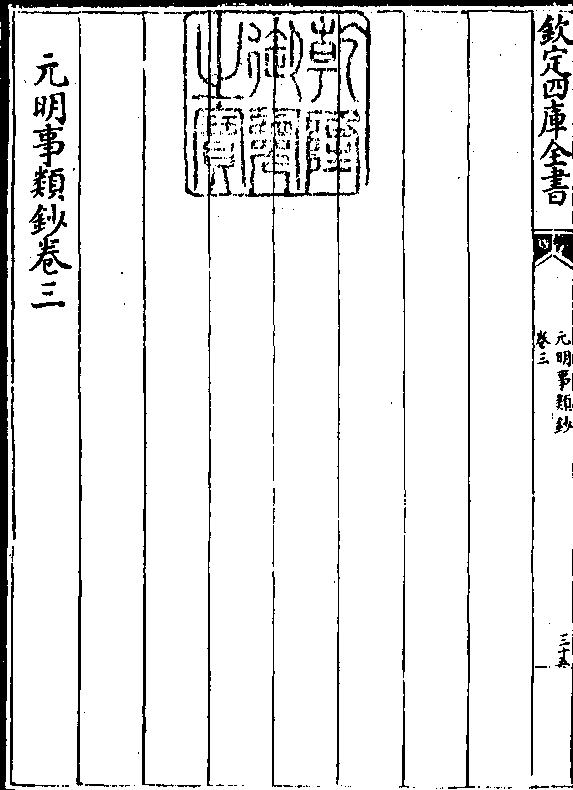 欽定四庫全書
元明事類鈔
卷三
三十五
乾隆御覽之寶
元明事類鈔卷三